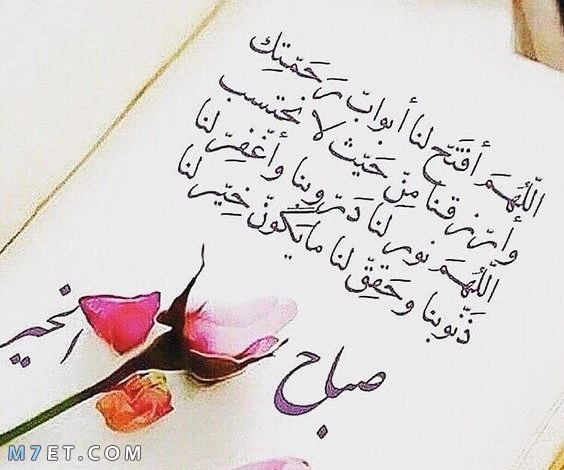 اللّهُمَ أفتَح لنا أبوابّ رَحَمّتِك
وأرّزقنا مِنّ حَيّث لا نحتسب
اللّهُمَ نور لنا دَرّوبنا وأغّفِرّ لنا
ذّنوبنا وحَقِقّ لنا مايَكّونّ خِيّر لنا
صباح الخير
M7ET.COM